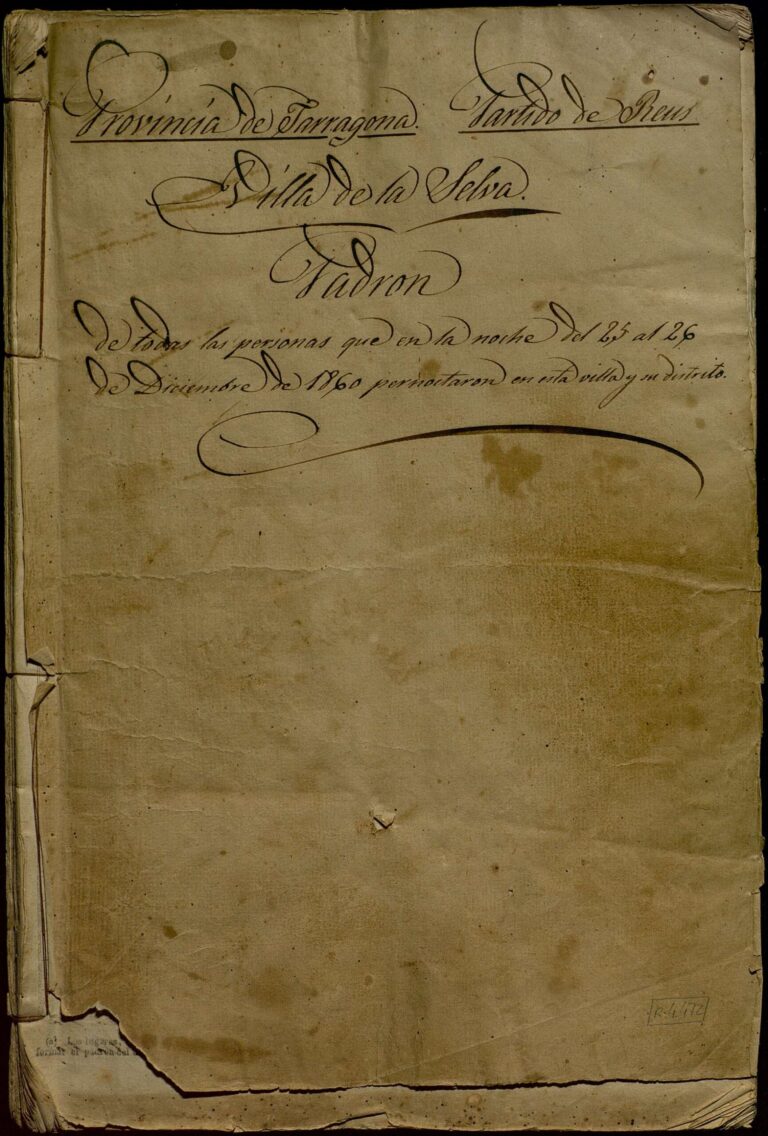 Provincia de Tarragona. Partido de Reus
Villa de la Selva.
Padron
de todas las personas que en la noche del 25 al 26
de Diciembre de 1860 pernoctaron en esta villa y su distrito.
R-4/172
(a) Los lugares,
formar el padron del